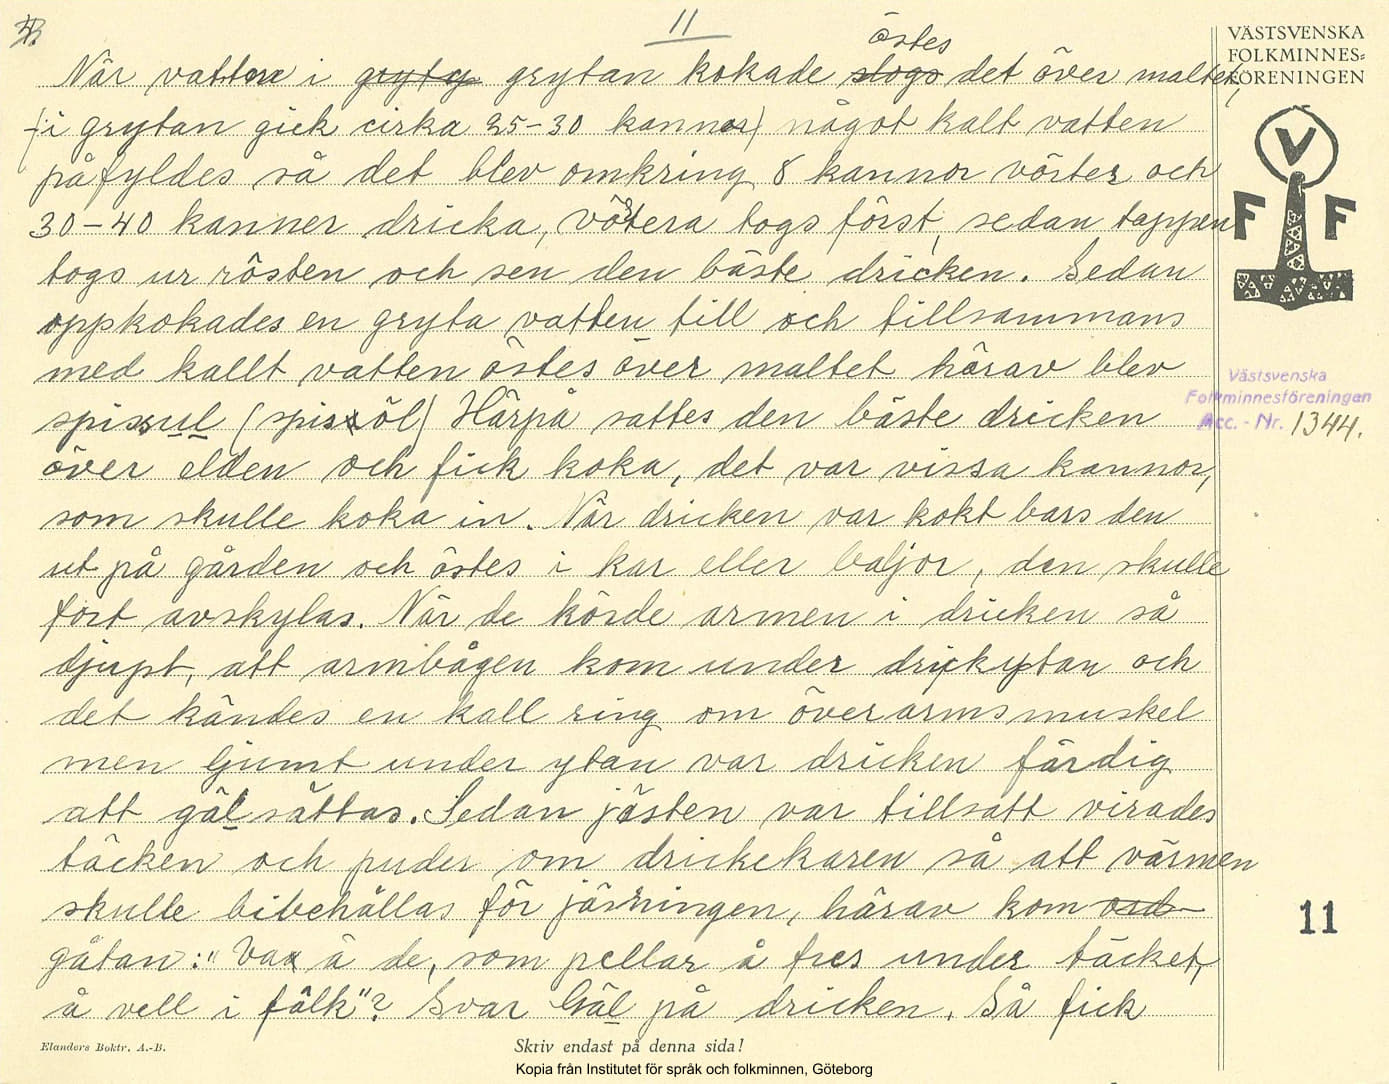 11
När vattnen i gryty grytan kokade slogs östes det över maltet,
(i grytan gick cirka 25-30 kannor) något kalt vatten
påfyldes så det blev omkring 8 kannor vörter och
30-40 kanner dricka, vörtera togs först, sedan tappen
togs ur rösten och sen den bäste dricken. Sedan
oppkokades en gryta vatten till och tillsammans
med kallt vatten östes över maltet härav blev
spissul (spisöl) Härpå sattes den bäste dricken
över elden och fick koka, det var vissa kannor,
som skulle koka in. När dricken var kokt bars den
ut på gården och östes i kar eller baljor, den skulle
fort avskylas. När de körde armen i dricken så
djupt, att armbågen kom under drickytan och
det kändes en kall ring om överarmsmuskel
men ljumt under ytan var dricken färdig
att gäl sättas. Sedan jästen var tillsatt virades
täcken och puder om drickekaren så att värmen
skulle bibehållas för jäsningen, härav kom ord
gåtan: "Va ä de, som pellar å fres under täcket,
å vell i fälk"? Svar Gäl på dricken. Så fick
VÄSTSVENSKA
FOLKMINNES=
FÖRENINGEN
V
F F
Västsvenska
Folkminnesföreningen
Acc. - Nr. 1344.
11
Elanders Boktr. A.-B.
Skriv endast på denna sida!
Kopia från Institutet för språk och folkminnen, Göteborg